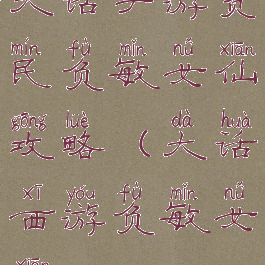 大话手游负
mín fù mǐn nǚ xiān
民负敏女仙
gōng lüè dà huà
攻略（大话
xī yóu fù mǐn nǚ
西游负敏女
xiān